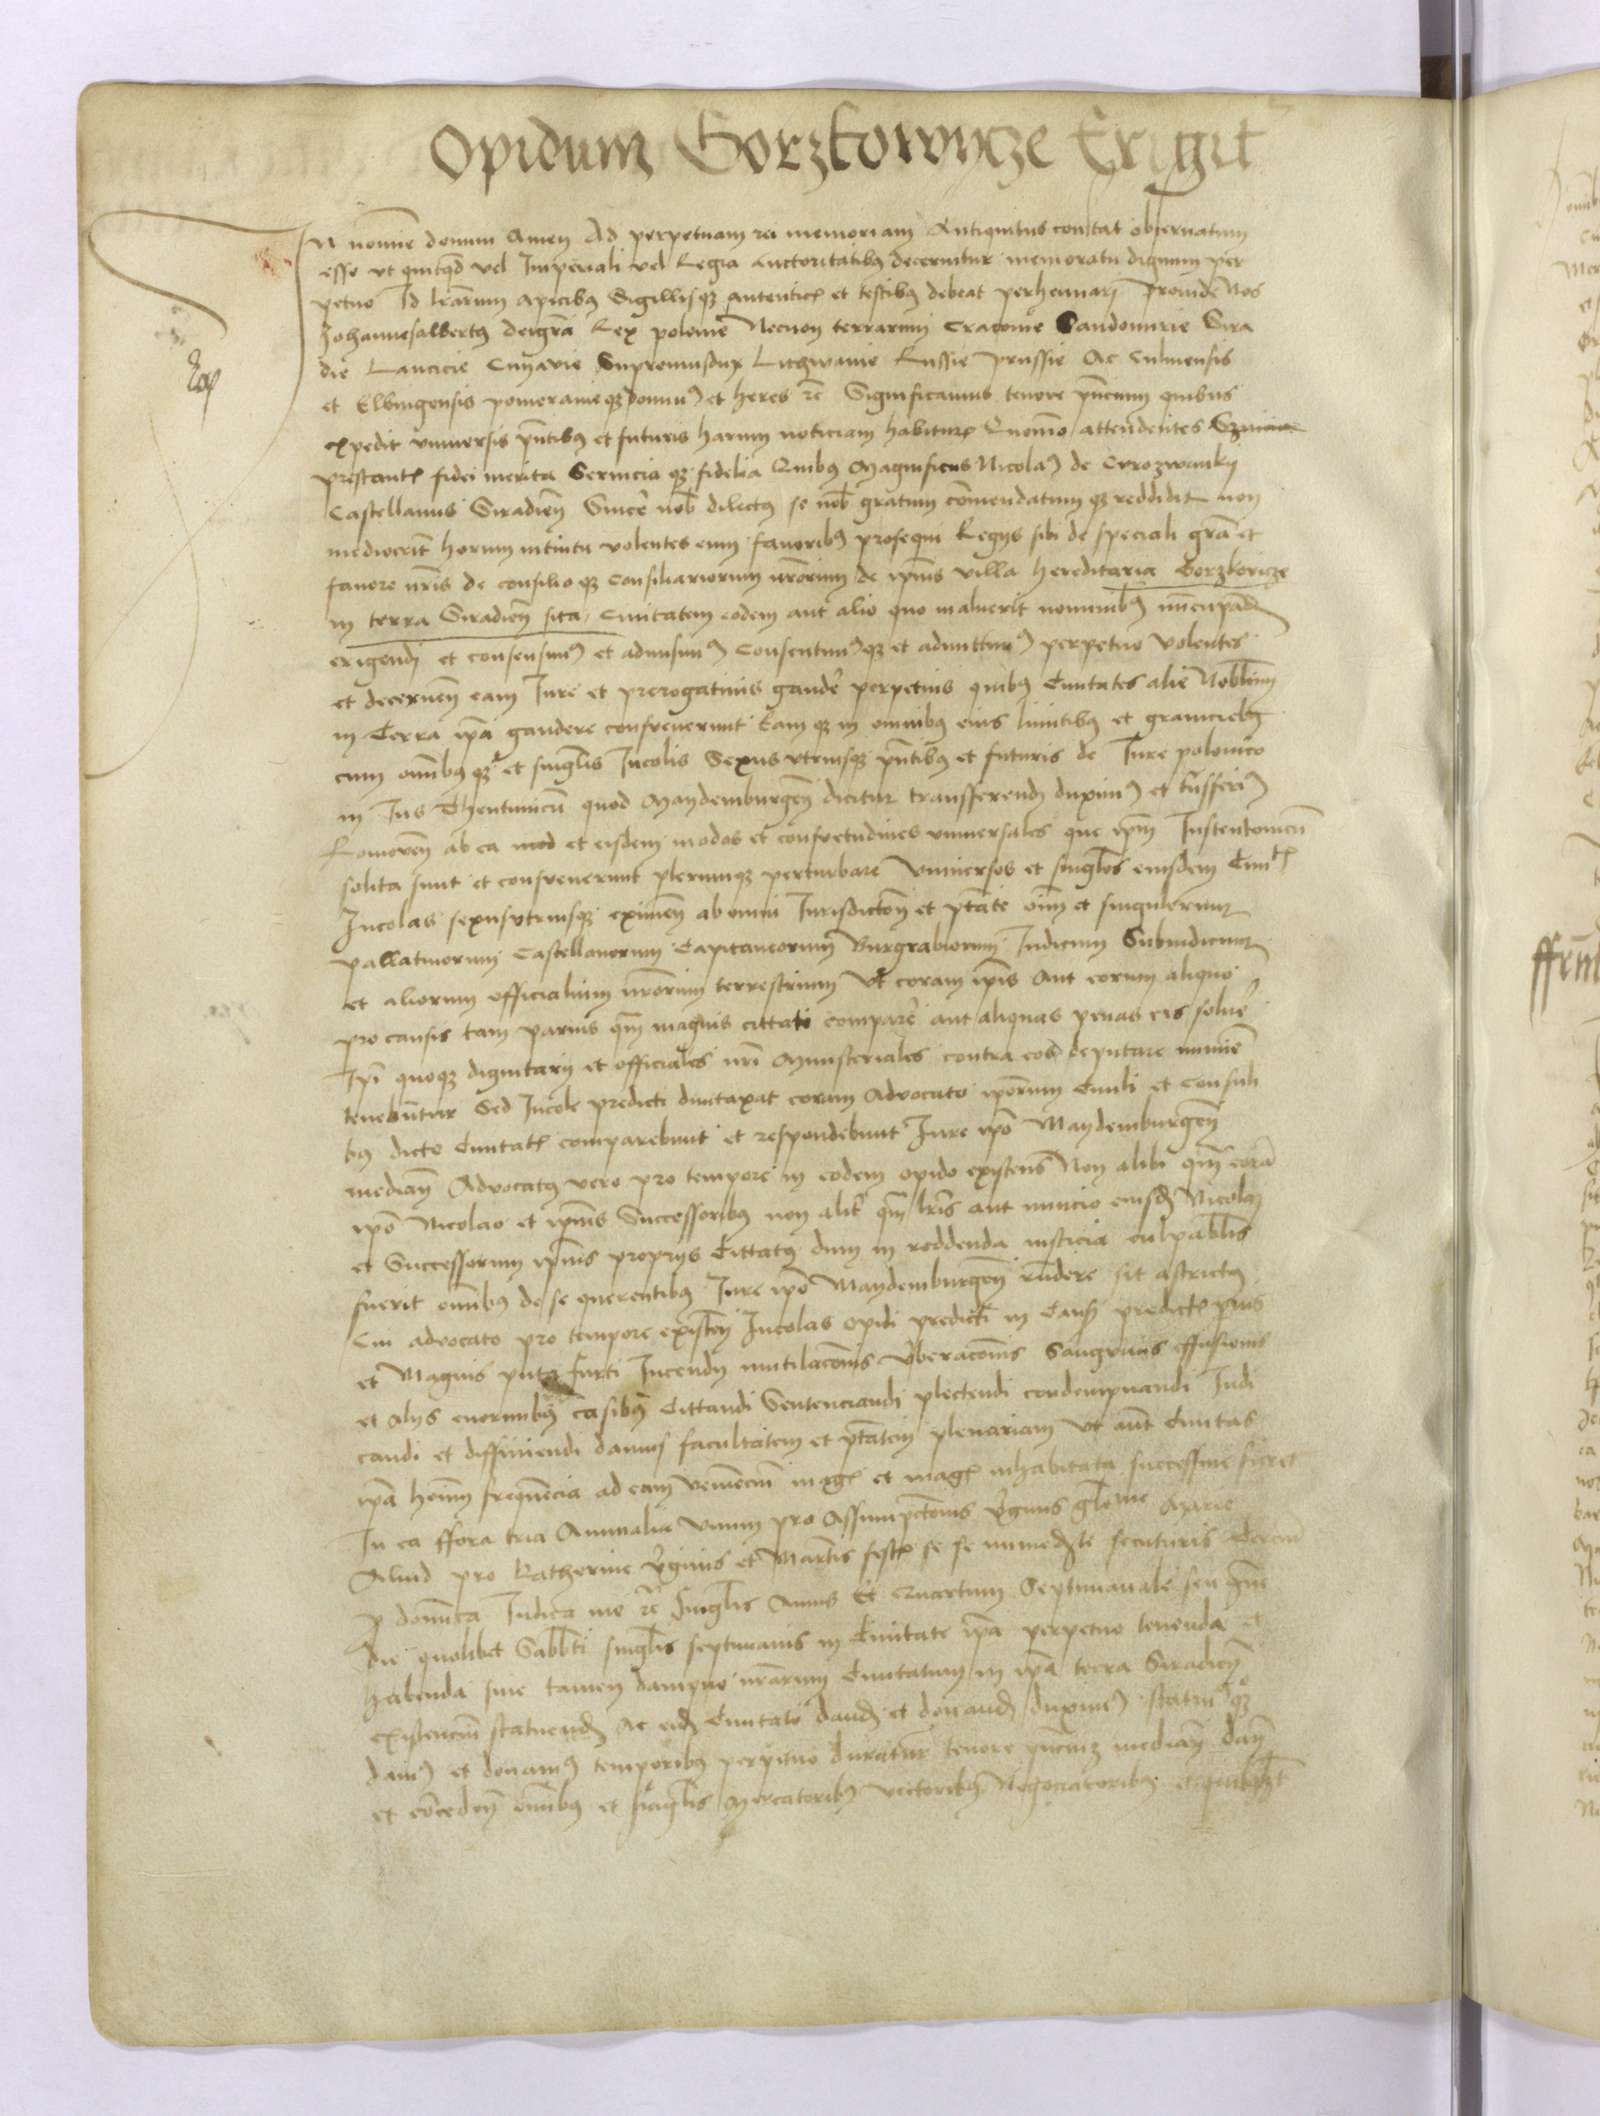 Opidum Gorzkowycze Erigit
In nomine domini Amen Ad perpetuam rei memoriam Antiquitus constat obseruatum
esse vt quitqd vel Imperiali vel Regia Auctoritatibus decernitur memoratu dignum per
petuo Id lrarum apicibus Sigillisqz autenticis et testibus debeat perhennari Proinde Nos
Johannesalbertus deigra Rex polonie Necnon terrarum Cracouie Sandomirie Sira
die Lancicie Cuyavie Supremusdux Lithwanie Russie prussie Ac Culmensis
et Elbingensis pomeranieqz domin9 et heres rc Significamus tenore pncium quibus
expedit vniuersis pntibus et futuris harum noticiam habituris Quomo attendentes
prestantis fidei merita Seruicia qz fidelia Quibus Magnificus Nicola9 de Cvrozwanky
Castellanus Siradien Sincere nob dilectus se nob gratum comendatum qz reddidit non
mediocrit horum intuitu volentes eum fauoribus prosequi Regys sibi de speciali gra et
fauore nris de consilio qz Consiliariorum nrorum de ipius villa hereditaria Gorzkovicze
in terra Siradien sita Ciuitatem eodem aut alio quo maluerit nominibus nuncupand
erigendi et consensim9 et admisim9 Consentim9qz et admittim9 perpetuo volentes
et decernen eam Jure et prerogatiuis gaudere perpetuis quibus Ciuitates alie Nobilium
in Terra ipa gaudere consueuerunt Eam qz in omnibus eius limitibus et graniciebus
cum omnibus qz et singlis Jncolis Sexus vtriusqz pntibus et futuris de Jure polonico
in Jus Theutunicu quod Maydemburgen dicitur transferend duxim9 et tnsferim9
Remouen ab ea et eisdem modos et consuetudines vniuersales que ipm Justeutonicu
solita sunt et consueuerunt plerumqz perturbare Vniuersos et singlos eiusdem Ciuitis
Jncolas sexusvtriusqz eximen ab omni Jurisdictoni et ptate oim et singulorum
pallatinorum Castellanorum Capitaneorum Burgrabiorum Judicum Subiudicum
et aliorum officialium nrorum terrestrium Vt coram ipis Aut eorum aliquo
pro causis tam paruis qm magnis cittati compare aut aliquas penas eis soluere
Ipi quoqz dignitary et officiales nri Ministeriales contra eos deputare minime
tenebuntur Sed Jncole predicti duntaxat coram Advocato iporum Ciuili et Consuli
bus dicte Ciuitatis comparebunt et respondebunt Jure ipo Maydemburgen
median Advocatus vero pro tempore in eodem opido existens Non alibi qm cora
ipo Nicolao et ipius Successoribus non alit qm lris aut nuncio eiusd Nicolai
et Successorum ipius proprys Cittatus dum in reddenda iusticia culpabilis
fuerit omnibus de se querentibus Jure ipo Maydemburgen rndere sit astrictus
Cui advocato pro tempore existen Jncolas opidi predicti in Causis predictis paruis
et Magnis puta furti Jncendy mutilaconis vberaconis Sangwinis effusionis
et alys enormibus casibus Cittandi Sentenciandi plectendi condempnandi Judi
candi et diffiniendi damus facultatem et ptatem plenariam Vt aut Ciuitas
ipa hoim frequencia ad eam veniencium magis et magis inhabitata successiue fieret
In ea ffora tria Annualia Vnum pro Assumpctionis virginis gloriose Marie
Aliud pro Katherine virginis et Martiris festis se se immediate secuturis Tercium
p dominica Judica me rc singlis Annis Et Quartum Septimanale seu
die quolibet Sabbati singlis septimanis in Ciuitate ipa perpetuo tenenda et
habenda sine tamen dampno nrarum Ciuitatum in ipa terra Siradien
existencium statuend Ac eid Ciuitati dand et donand duxim9 statuim9qz
damus et donamus temporibus perpetuo duratur tenore pncium median dan
et conceden omnibus et singlis Mercatoribus vectoribus Negociatoribus et quibuslibet